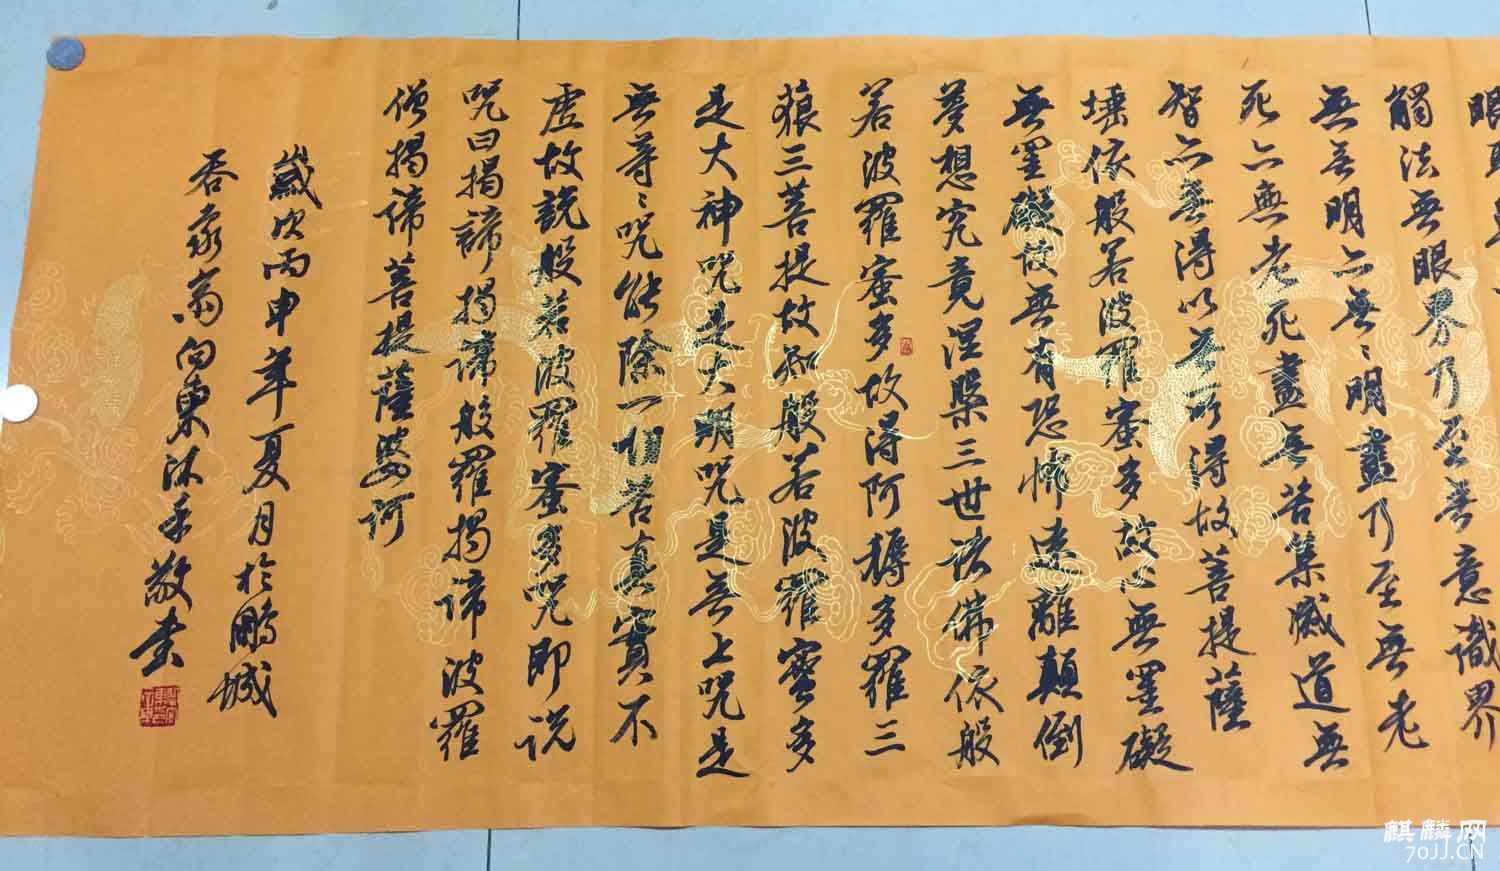 眼耳
觸法無眼界乃至無意識界
無無明亦無々明盡乃至無老
死亦無老死盡無苦集滅道無
智亦無得以無所得故菩提薩
埵依般若波羅蜜多故心無罣礙
無罣礙故無有恐怖遠離顛倒
夢想究竟涅槃三世諸佛依般
若波羅蜜多故得阿耨多羅三
藐三菩提故知般若波羅蜜多
是大神咒是大明咒是無上咒是
無等々咒能除一切苦真實不
虛故説般若波羅蜜多咒即说
咒曰揭諦揭諦般羅揭諦波羅
僧揭諦菩提薩婆訶
歲次丙申年夏月於鵬城
吞象齋向東沐手敬書
麒麟网
70JJ.CN